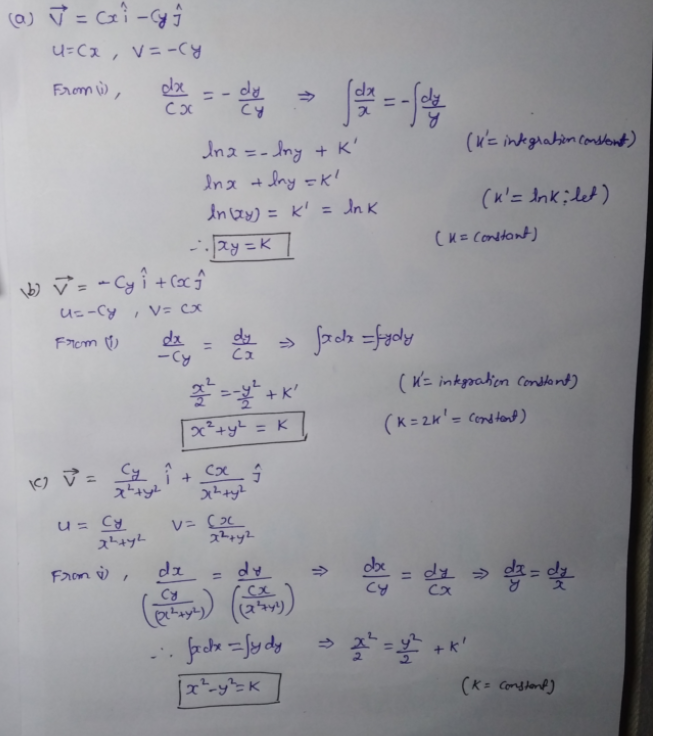 (a) V⃗ = Cx î - Cy ĵ
u=Cx , V = -Cy
From (i), dx/Cx = - dy/Cy ⇒ ∫dx/x = -∫dy/y
lnx = -lny + K' (K'= integration constant)
lnx + lny = K'
ln(xy) = K' = lnK (K' = lnK; let)
∴ xy = K (K = constant)
(b) V⃗ = -Cy î + Cx ĵ
u=-Cy , V= Cx
From (i) dx/-Cy = dy/Cx ⇒ ∫xdx = ∫-ydy
x²/2 = -y²/2 + K' (K'= integration constant)
x²+y² = K (K = 2K' = constant)
(c) V⃗ = Cy/x²+y² î + Cx/x²+y² ĵ
u = Cy/x²+y² V= Cx/x²+y²
From (i), dx/(Cy/(x²+y²)) = dy/(Cx/(x²+y²)) ⇒ dx/Cy = dy/Cx ⇒ dx/y = dy/x
∴ ∫xdx = ∫ydy ⇒ x²/2 = y²/2 + K'
x²-y²=K (K = constant)